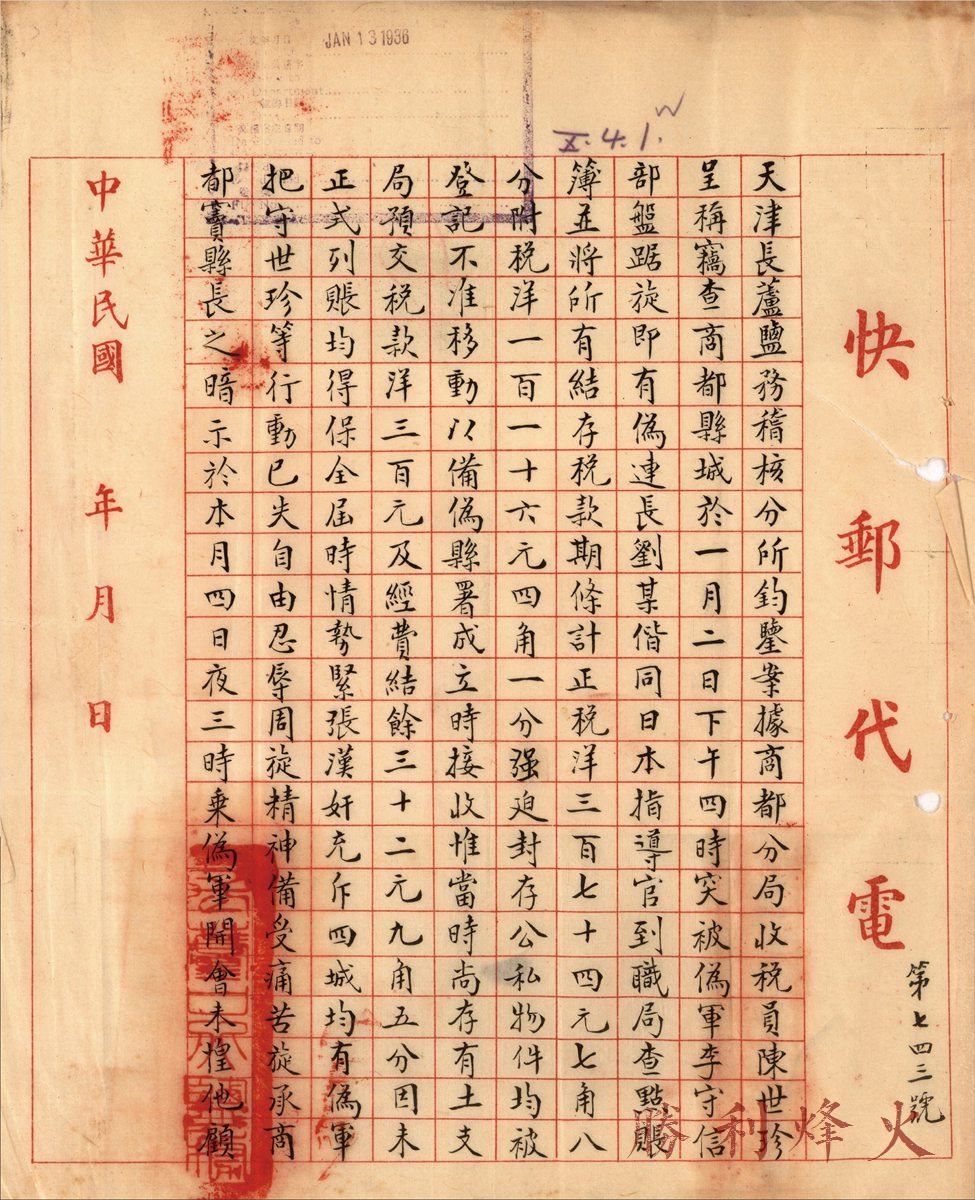 JAN 13 1936
X.4.1.
快郵代電
第七四三號
天津長蘆鹽務稽核分所鈞鑒案據商都分局收税員陳世珍
呈稱竊查商都縣城於一月二日下午四時突被偽軍李守信
部盤踞旋即有偽連長劉某偕同日本指導官到職局查點賬
簿並將所有結存税款期條計正税洋三百七十四元七角八
分附税洋一百一十六元四角一分强迫封存公私物件均被
登記不准移動以備偽縣署成立時接收惟當時尚存有土支
局預交税款洋三百元及經費結餘三十二元九角五分因未
正式列賬均得保全屆時情勢緊張漢奸充斥四城均有偽軍
把守世珍等行動已失自由忍辱周旋精神備受痛苦旋承商
都竇縣長之暗示於本月四日夜三時乘偽軍開會未惶他顧
中華民國 年 月 日
勝利烽火